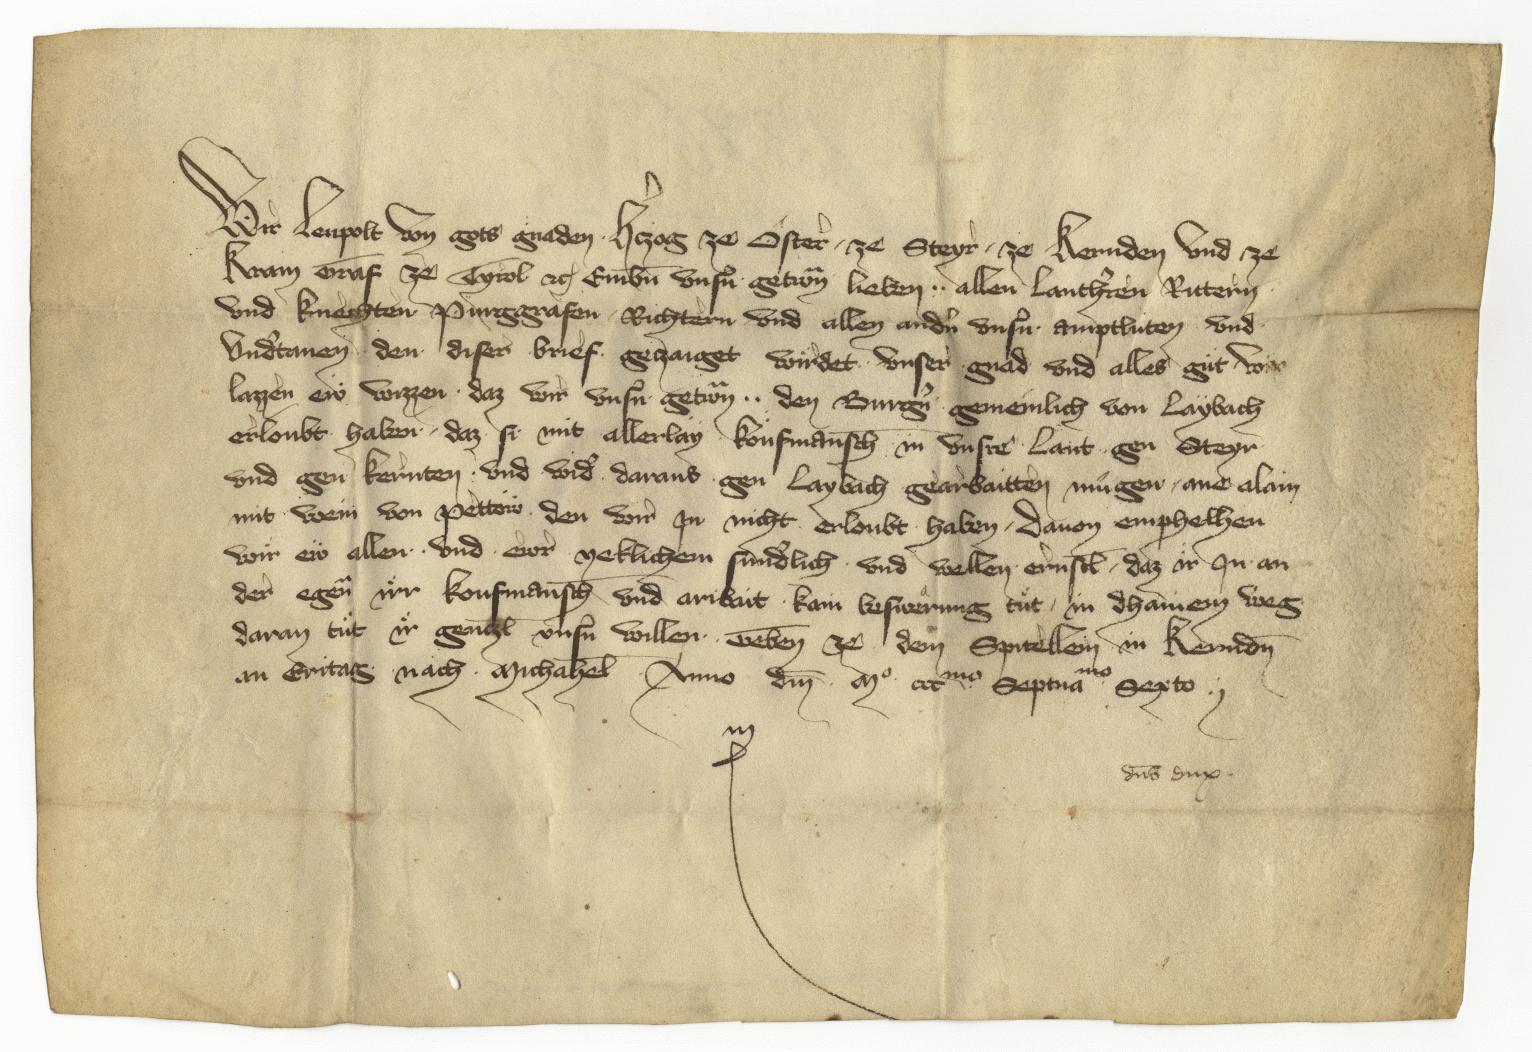 Wir Leupolt von gots gnaden hʼzog ze Österʼ ze Steyrʼ ze Kernden vnd ze
Kram Graf ze Tyrol ⁊c Embn̄ vnsn̄ getrwn̄ lieben ·· allen lanthʼren Rittern
vnd knechten Purggrafen Richtern vnd allen andʼn vnsn̄ amptluten vnd
vndʼtanen den diser brief getzaiget wirdet vnser gnad vnd alles gut wir
lazzen ew wizzen daz wir vnsn̄ getrwn̄ ·· den Burgʼn gemeinlich von Laybach
erloubt haben daz si mit allerlay koufmansch in vnsre Lant gen Steyr
vnd gen kernten vnd widʼ daraus gen Laybach gearbaitten mugen ane alain
mit wein von Pettow den wir In nicht erloubt haben Dauon emphelhen
wir ew allen vnd ewrʼ yeklichem sundʼlich vnd wellen ernstl̄ daz ir In an
der egen̄ irr koufmansch vnd aribait kain beswerung tut in dhainem weg
daran tut ir gentzl̄ vnsn̄ willen Geben ze dem Spitellein in Kerndn̄
an Eritag nach Michahel̄ Anno dm̄ Mº cccmo Septuamo Sexto
dn̄s dux